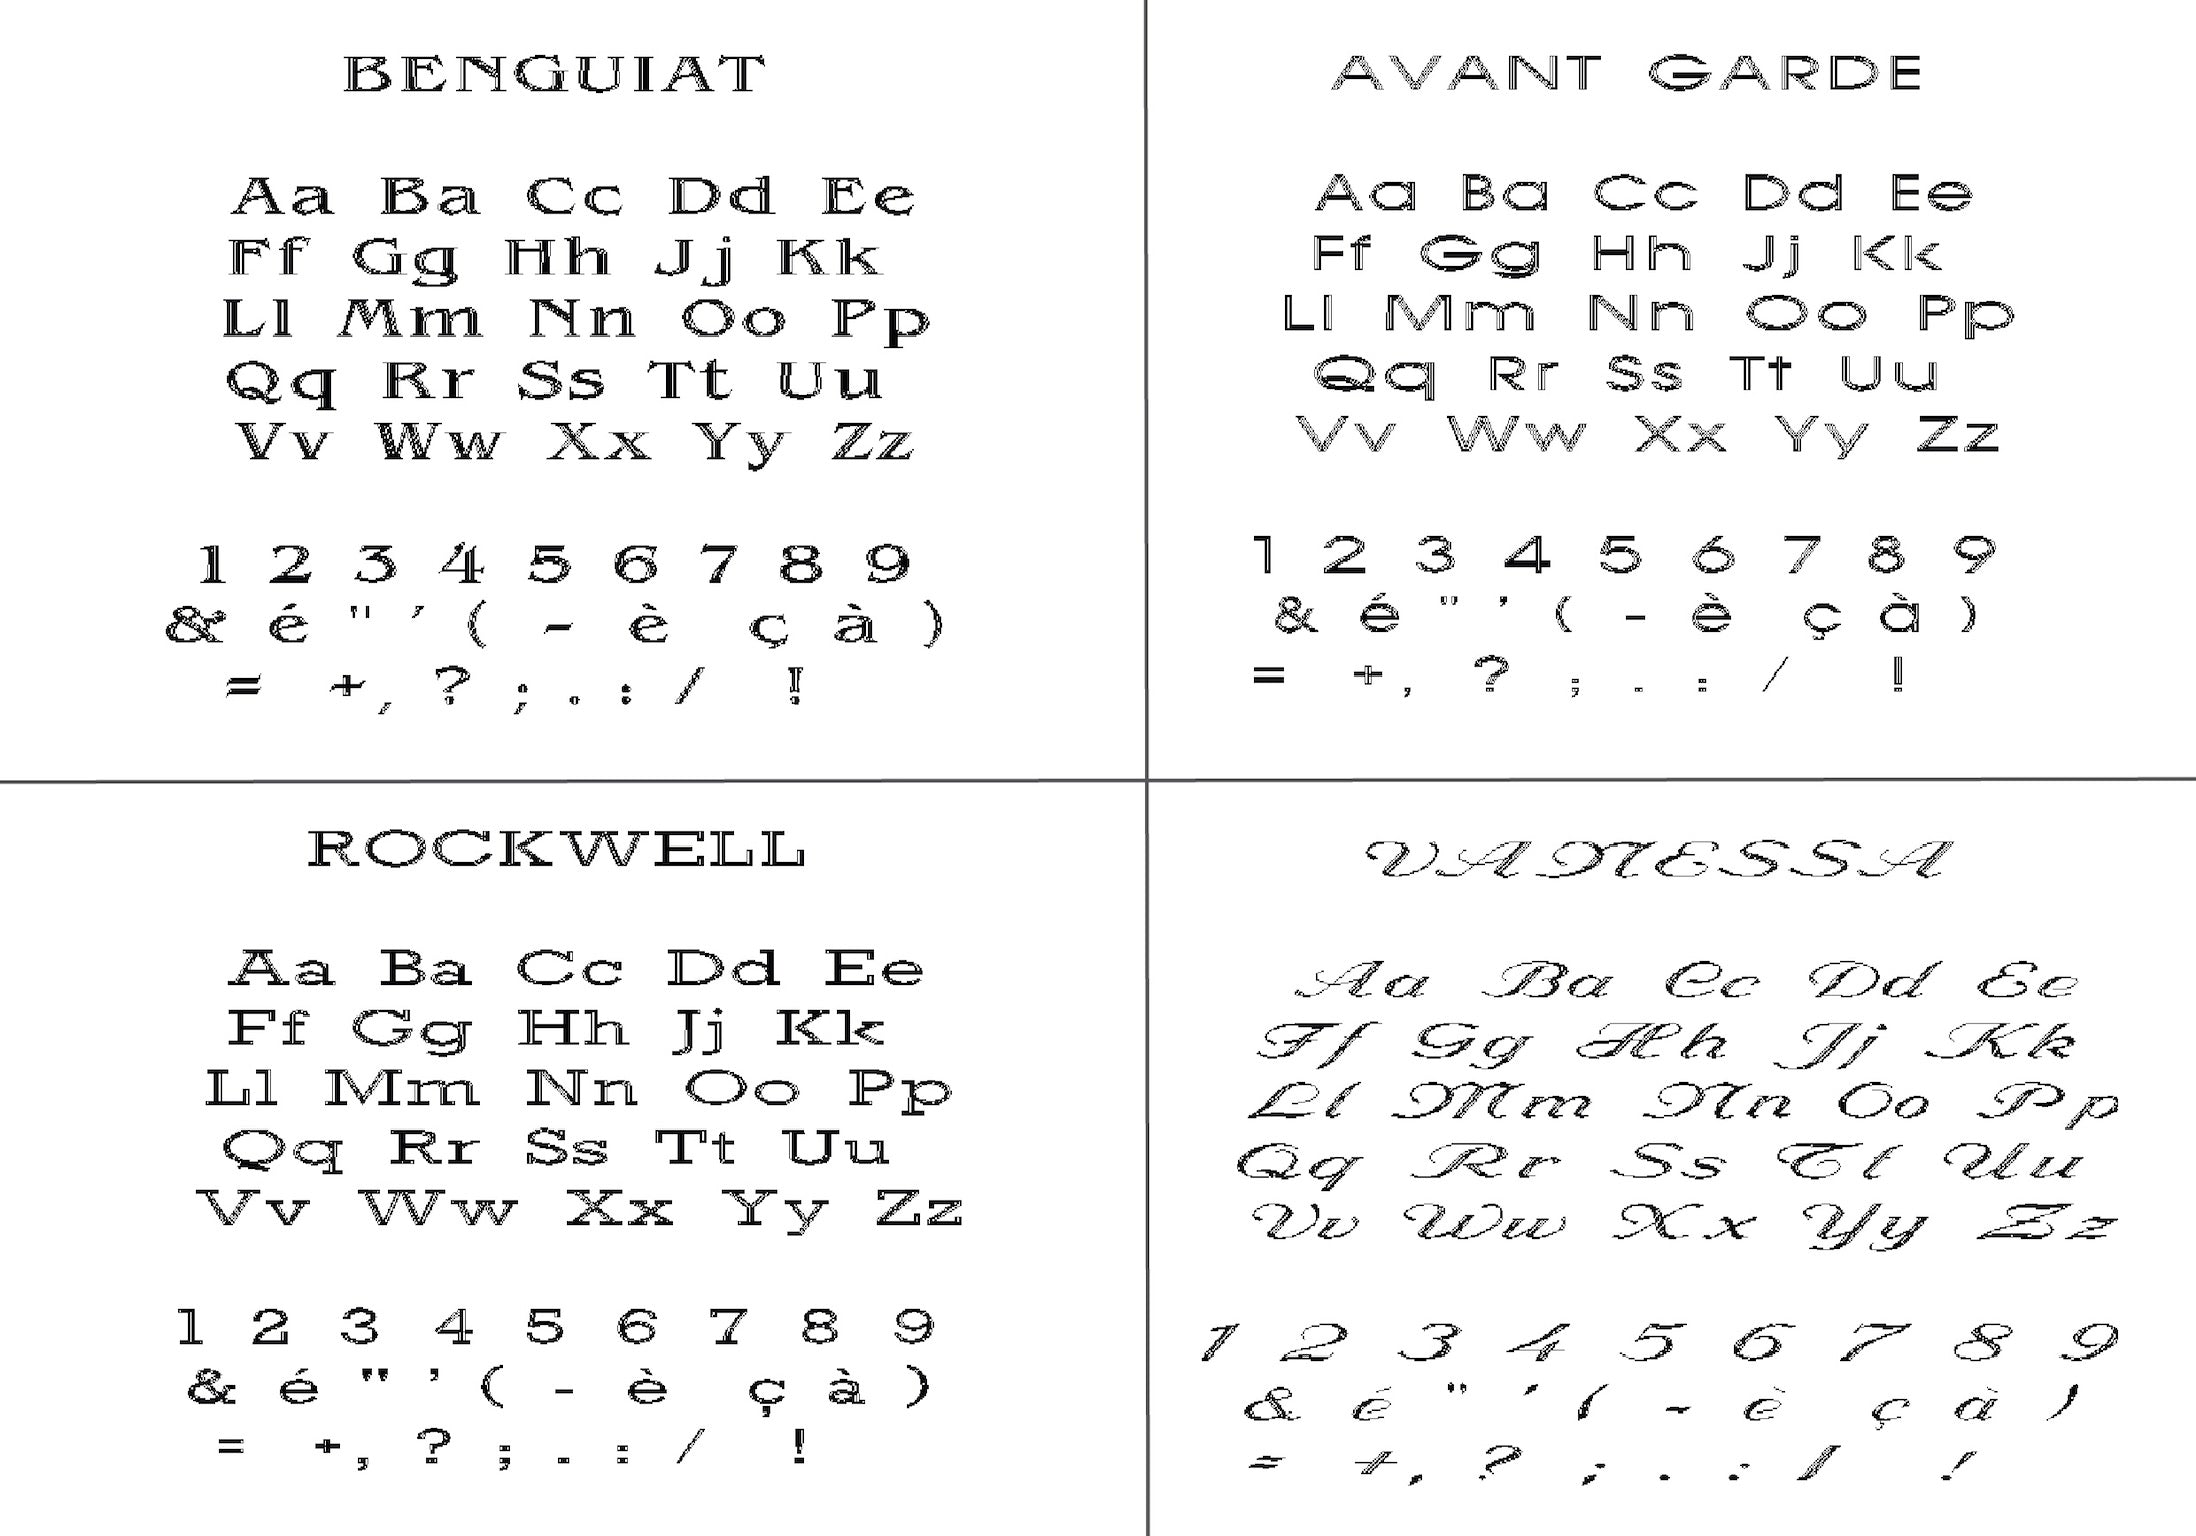 BENGUIAT
Aa Ba Cc Dd Ee
Ff Gg Hh Jj Kk
Ll Mm Nn Oo Pp
Qq Rr Ss Tt Uu
Vv Ww Xx Yy Zz
1 2 3 4 5 6 7 8 9
& é " ' ( - è ç à )
= +, ? ; . : / !
AVANT GARDE
Aa Ba Cc Dd Ee
Ff Gg Hh Jj Kk
Ll Mm Nn Oo Pp
Qq Rr Ss Tt Uu
Vv Ww Xx Yy Zz
1 2 3 4 5 6 7 8 9
& é " ' ( - è ç à )
= +, ? ; . : / !
ROCKWELL
Aa Ba Cc Dd Ee
Ff Gg Hh Jj Kk
Ll Mm Nn Oo Pp
Qq Rr Ss Tt Uu
Vv Ww Xx Yy Zz
1 2 3 4 5 6 7 8 9
& é " ' ( - è ç à )
= +, ? ; . : / !
VANESSA
Aa Ba Cc Dd Ee
Ff Gg Hh Jj Kk
Ll Mm Nn Oo Pp
Qq Rr Ss Tt Uu
Vv Ww Xx Yy Zz
1 2 3 4 5 6 7 8 9
& é " ' ( - è ç à )
= +, ? ; . : / !